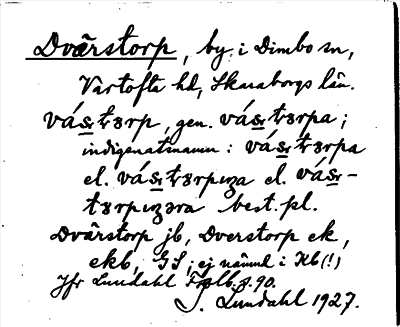 Dvärstorp, by i Dimbo sn,
Vartofta hd, Skaraborgs län.
vás̲tɤrp, gen. vás̲tɤrpa;
indigenatnamn: vás̲tɤrpa
el. vás̲tɤrpɩza el. vás̲-
tɤrpɩzəra best. pl.
Dvärstorp jb, Dverstorp ek,
ekb, GS, ej nämnd i Kb(!)
Jfr Lundahl Falb. s. 90.
I. Lundahl 1927.